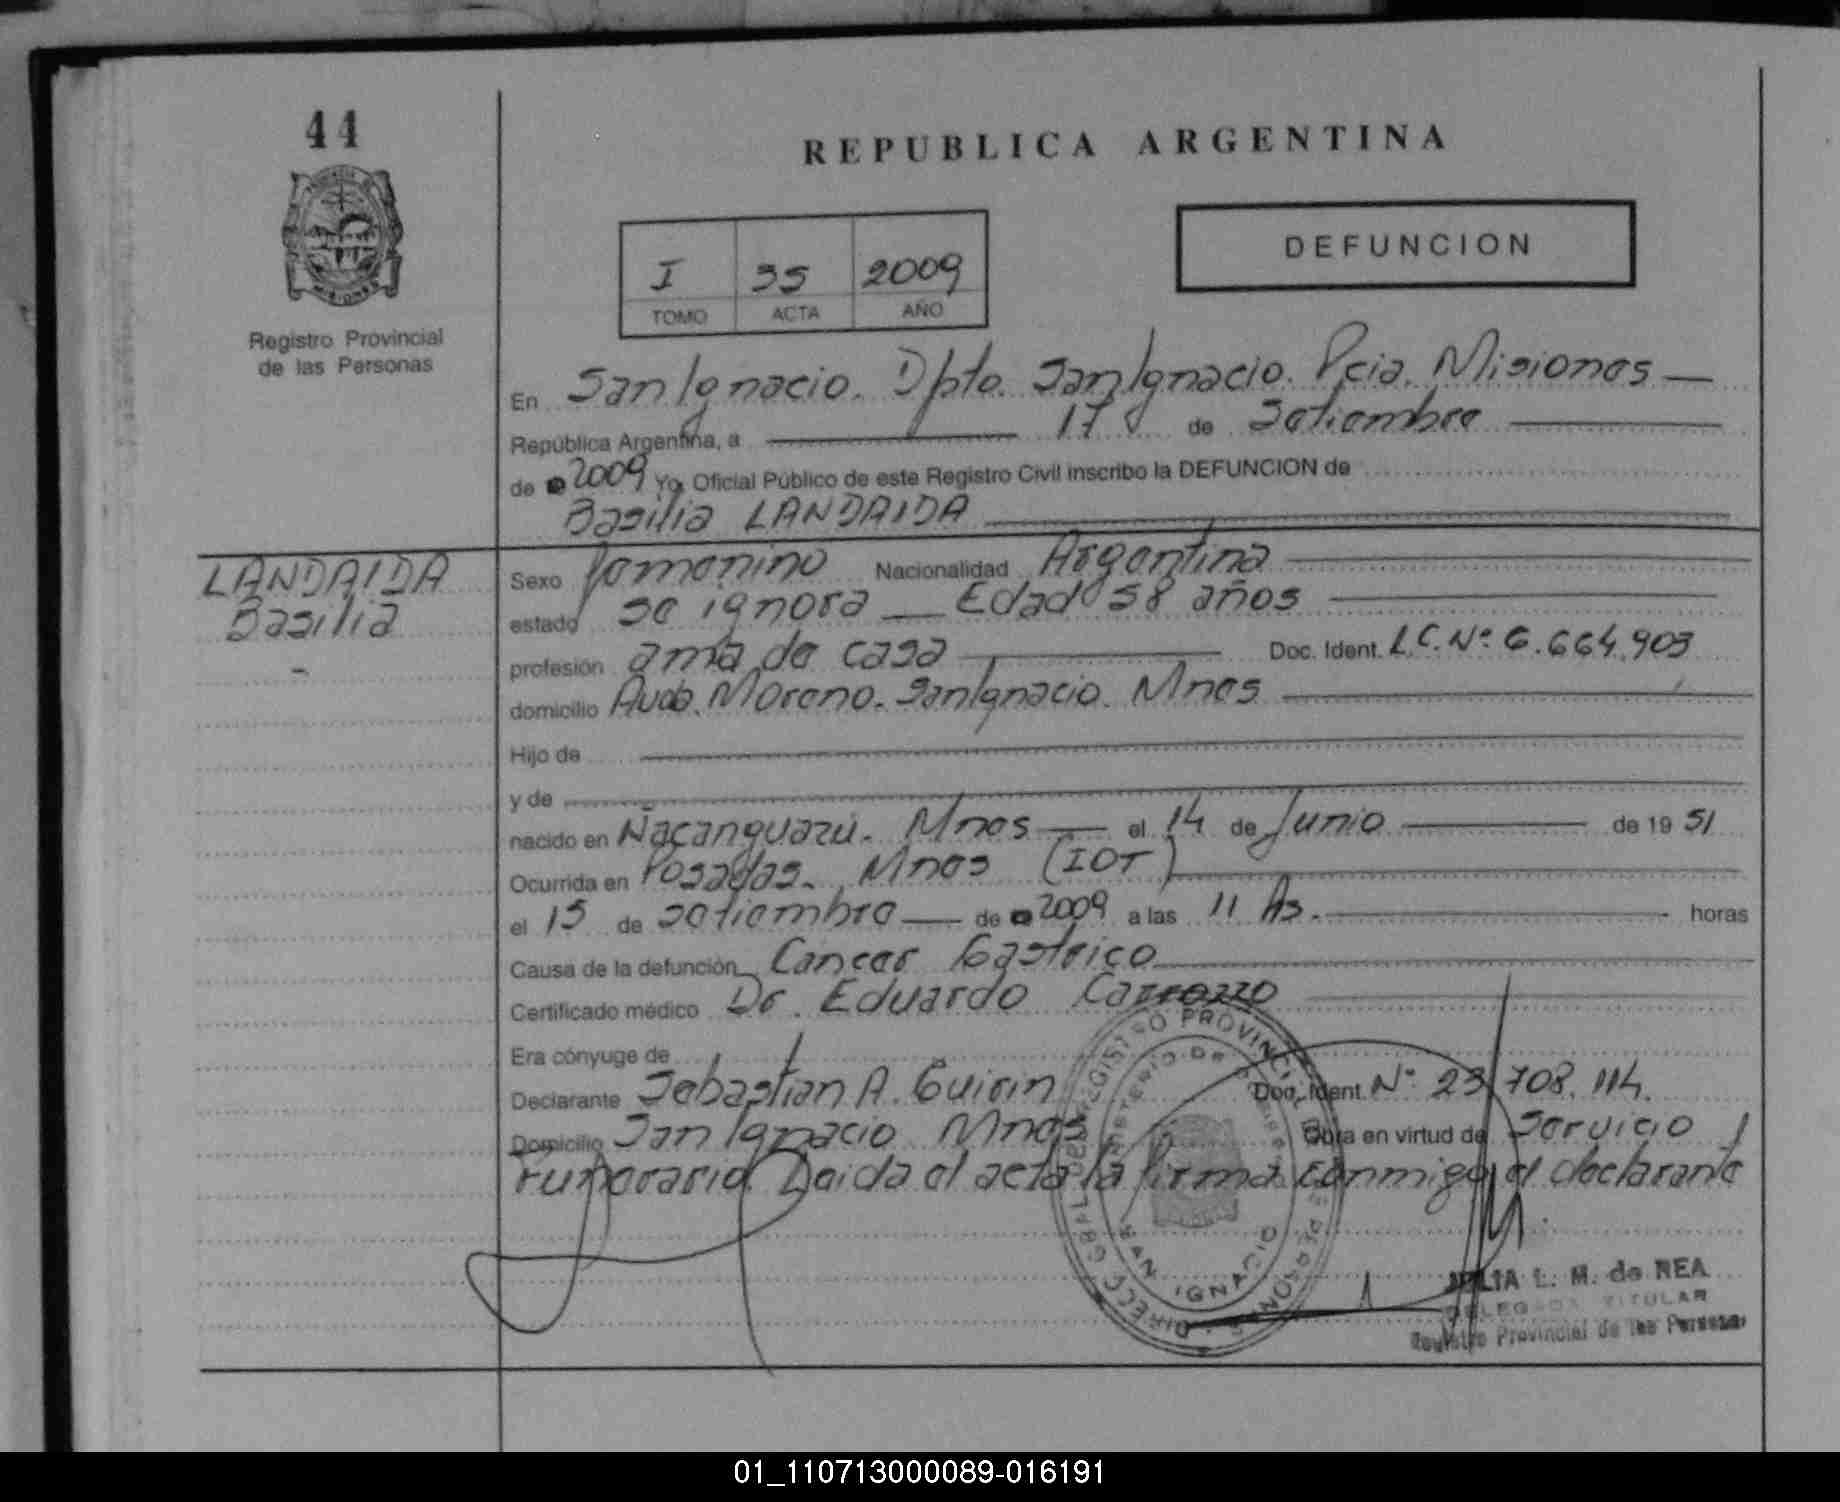 44
REPUBLICA ARGENTINA
I 35 2009
TOMO ACTA AÑO
DEFUNCION
Registro Provincial
de las Personas
En San Ignacio. Dpto. San Ignacio. Pcia. Misiones
República Argentina, a 17 de Setiembre
de 2009 Yo, Oficial Público de este Registro Civil inscribo la DEFUNCION de
Basilia LANDAIDA
LANDAIDA
Basilia
Sexo femenino Nacionalidad Argentina
estado se ignora Edad 58 años
profesión ama de casa Doc. Ident. L.C. Nº 6.664.903
domicilio Avda. Moreno. San Ignacio. Mnes
Hijo de
y de
nacido en Ñacanguazú. Mnes el 14 de Junio de 19 51
Ocurrida en Posadas. Mnes (IOT)
el 15 de setiembre de 2009 a las 11 hs. horas
Causa de la defunción Cancer Gastrico
Certificado médico Dr. Eduardo Carrozzo
Era cónyuge de
Declarante Sebastian A. Guirin Doc. Ident. Nº 23.708.114.
Domicilio San Ignacio Mnes Obra en virtud de Servicio
Funerario. Leida el acta la firma conmigo el declarante
DIRECC. GRAL. DEL REGISTRO PROVINCIAL DE LAS PERSONAS
MINISTERIO DE
SAN IGNACIO
JULIA L. M. de REA
DELEGADA TITULAR
Registro Provincial de las Personas
01_110713000089-016191